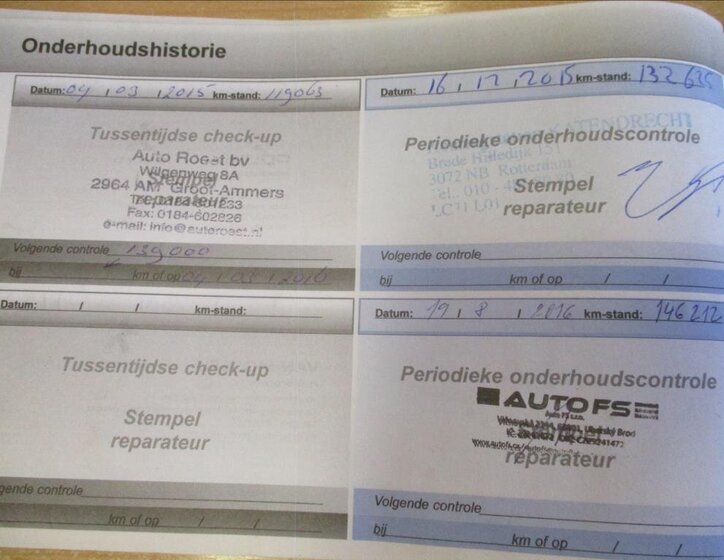 Onderhoudshistorie
Datum: 04 / 03 / 2015 km-stand: 119063
Tussentijdse check-up
Auto Roest bv
Wilgenweg 8A
Stempel
2964 AM Groot-Ammers
reparateur
Fax: 0184-602826
e-mail: info@autoroest.nl
Volgende controle 139000
bij km of op 04 / 03 / 2016
Datum: 16 / 12 / 2015 km-stand: 132635
KATENDRECHT
Periodieke onderhoudscontrole
Brede Hilledijk
3072 NB Rotterdam
Tel.: 010 -
Stempel
reparateur
Volgende controle
bij km of op / /
Datum: / / km-stand:
Tussentijdse check-up
Stempel
reparateur
gende controle
km of op / /
Datum: 19 / 8 / 2016 km-stand: 146212
Periodieke onderhoudscontrole
AUTO FS
Auto FS s.r.o.
Brod
reparateur
Volgende controle
bij km of op / /